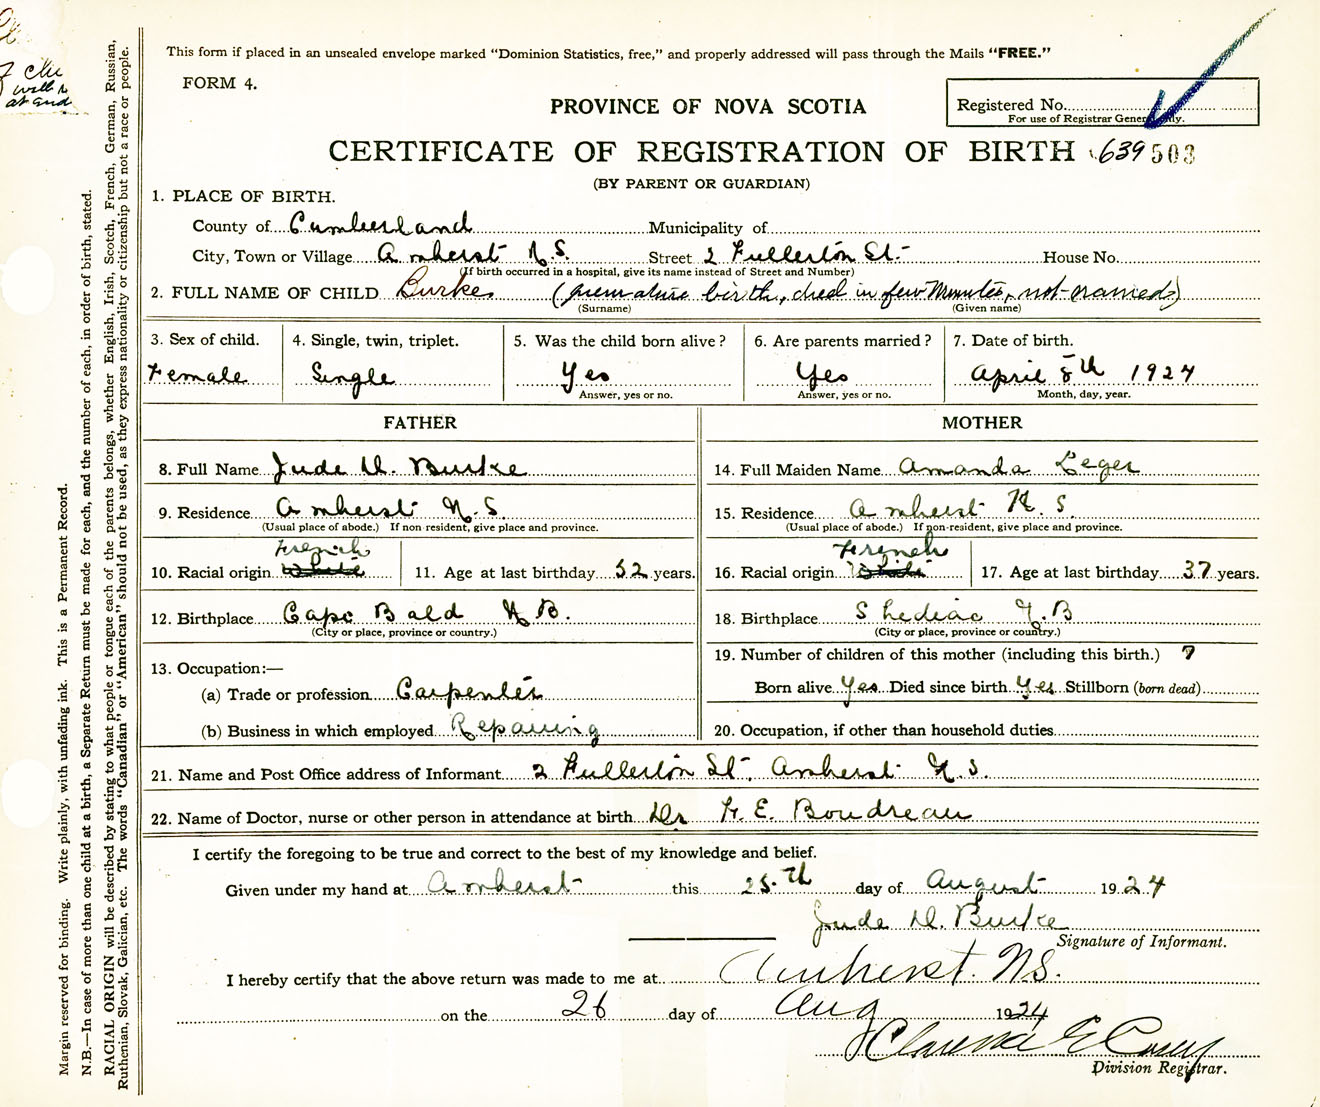 This form if placed in an unsealed envelope marked “Dominion Statistics, free,” and properly addressed will pass through the Mails “FREE.”
FORM 4.
PROVINCE OF NOVA SCOTIA
Registered No.
For use of Registrar General only.
CERTIFICATE OF REGISTRATION OF BIRTH 639 503
(BY PARENT OR GUARDIAN)
1. PLACE OF BIRTH.
County of Cumberland Municipality of
City, Town or Village Amherst N.S. Street 2 Fullerton St. House No.
(If birth occurred in a hospital, give its name instead of Street and Number)
2. FULL NAME OF CHILD Burke (premature birth, died in few minutes, not named)
(Surname) (Given name)
3. Sex of child. 4. Single, twin, triplet. 5. Was the child born alive? 6. Are parents married? 7. Date of birth.
Female Single Yes Yes April 8th 1924
Answer, yes or no. Answer, yes or no. Month, day, year.
FATHER MOTHER
8. Full Name Jude D. Burke 14. Full Maiden Name Amanda Leger
9. Residence Amherst N.S. 15. Residence Amherst N.S.
(Usual place of abode.) If non-resident, give place and province. (Usual place of abode.) If non-resident, give place and province.
French French
10. Racial origin White 11. Age at last birthday 52 years. 16. Racial origin White 17. Age at last birthday 37 years.
12. Birthplace Cape Bald N.B. 18. Birthplace Shediac N.B
(City or place, province or country.) (City or place, province or country.)
13. Occupation:— 19. Number of children of this mother (including this birth.) 7
(a) Trade or profession Carpenter Born alive Yes Died since birth Yes Stillborn (born dead)
(b) Business in which employed Repairing 20. Occupation, if other than household duties
21. Name and Post Office address of Informant 2 Fullerton St. Amherst N.S.
22. Name of Doctor, nurse or other person in attendance at birth Dr E. Boudreau
I certify the foregoing to be true and correct to the best of my knowledge and belief.
Given under my hand at Amherst this 25th day of August 1924
Jude D. Burke
Signature of Informant.
I hereby certify that the above return was made to me at Amherst. N.S.
on the 26 day of Aug 1924
Clarence E Casey
Division Registrar.
Margin reserved for binding. Write plainly, with unfading ink. This is a Permanent Record.
N.B.—In case of more than one child at a birth, a Separate Return must be made for each, and the number of each, in order of birth, stated.
RACIAL ORIGIN will be described by stating to what people or tongue each of the parents belongs, whether English, Irish, Scotch, French, German, Russian,
Ruthenian, Slovak, Galician, etc. The words “Canadian” or “American” should not be used, as they express nationality or citizenship but not a race or people.